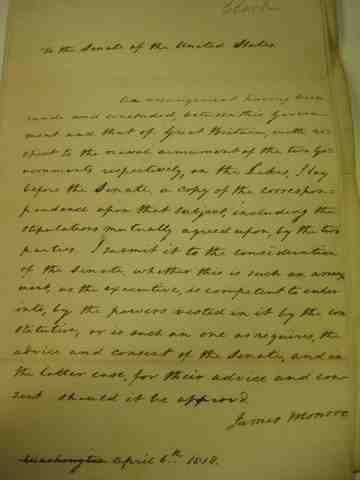 To the Senate of the United States.
An arrangement having been
made and concluded, between this Govern-
ment and that of Great Britain, with re-
spect to the naval armament of the two Go-
vernments respectively, on the Lakes, I lay
before the Senate, a copy of the correspon-
pondence upon that subject, including the
stipulations mutually agreed upon, by the two
parties. I submit it to the consideration
of the Senate, whether this is such an arrange-
ment, as the executive, is competent to enter
into, by the powers vested in it by the con
stitution, or is such an one as requires, the
advice and consent of the Senate, and in
the latter case, for their advice and con-
sent should it be approv'd
James Monroe
Washington April 6th. 1818.